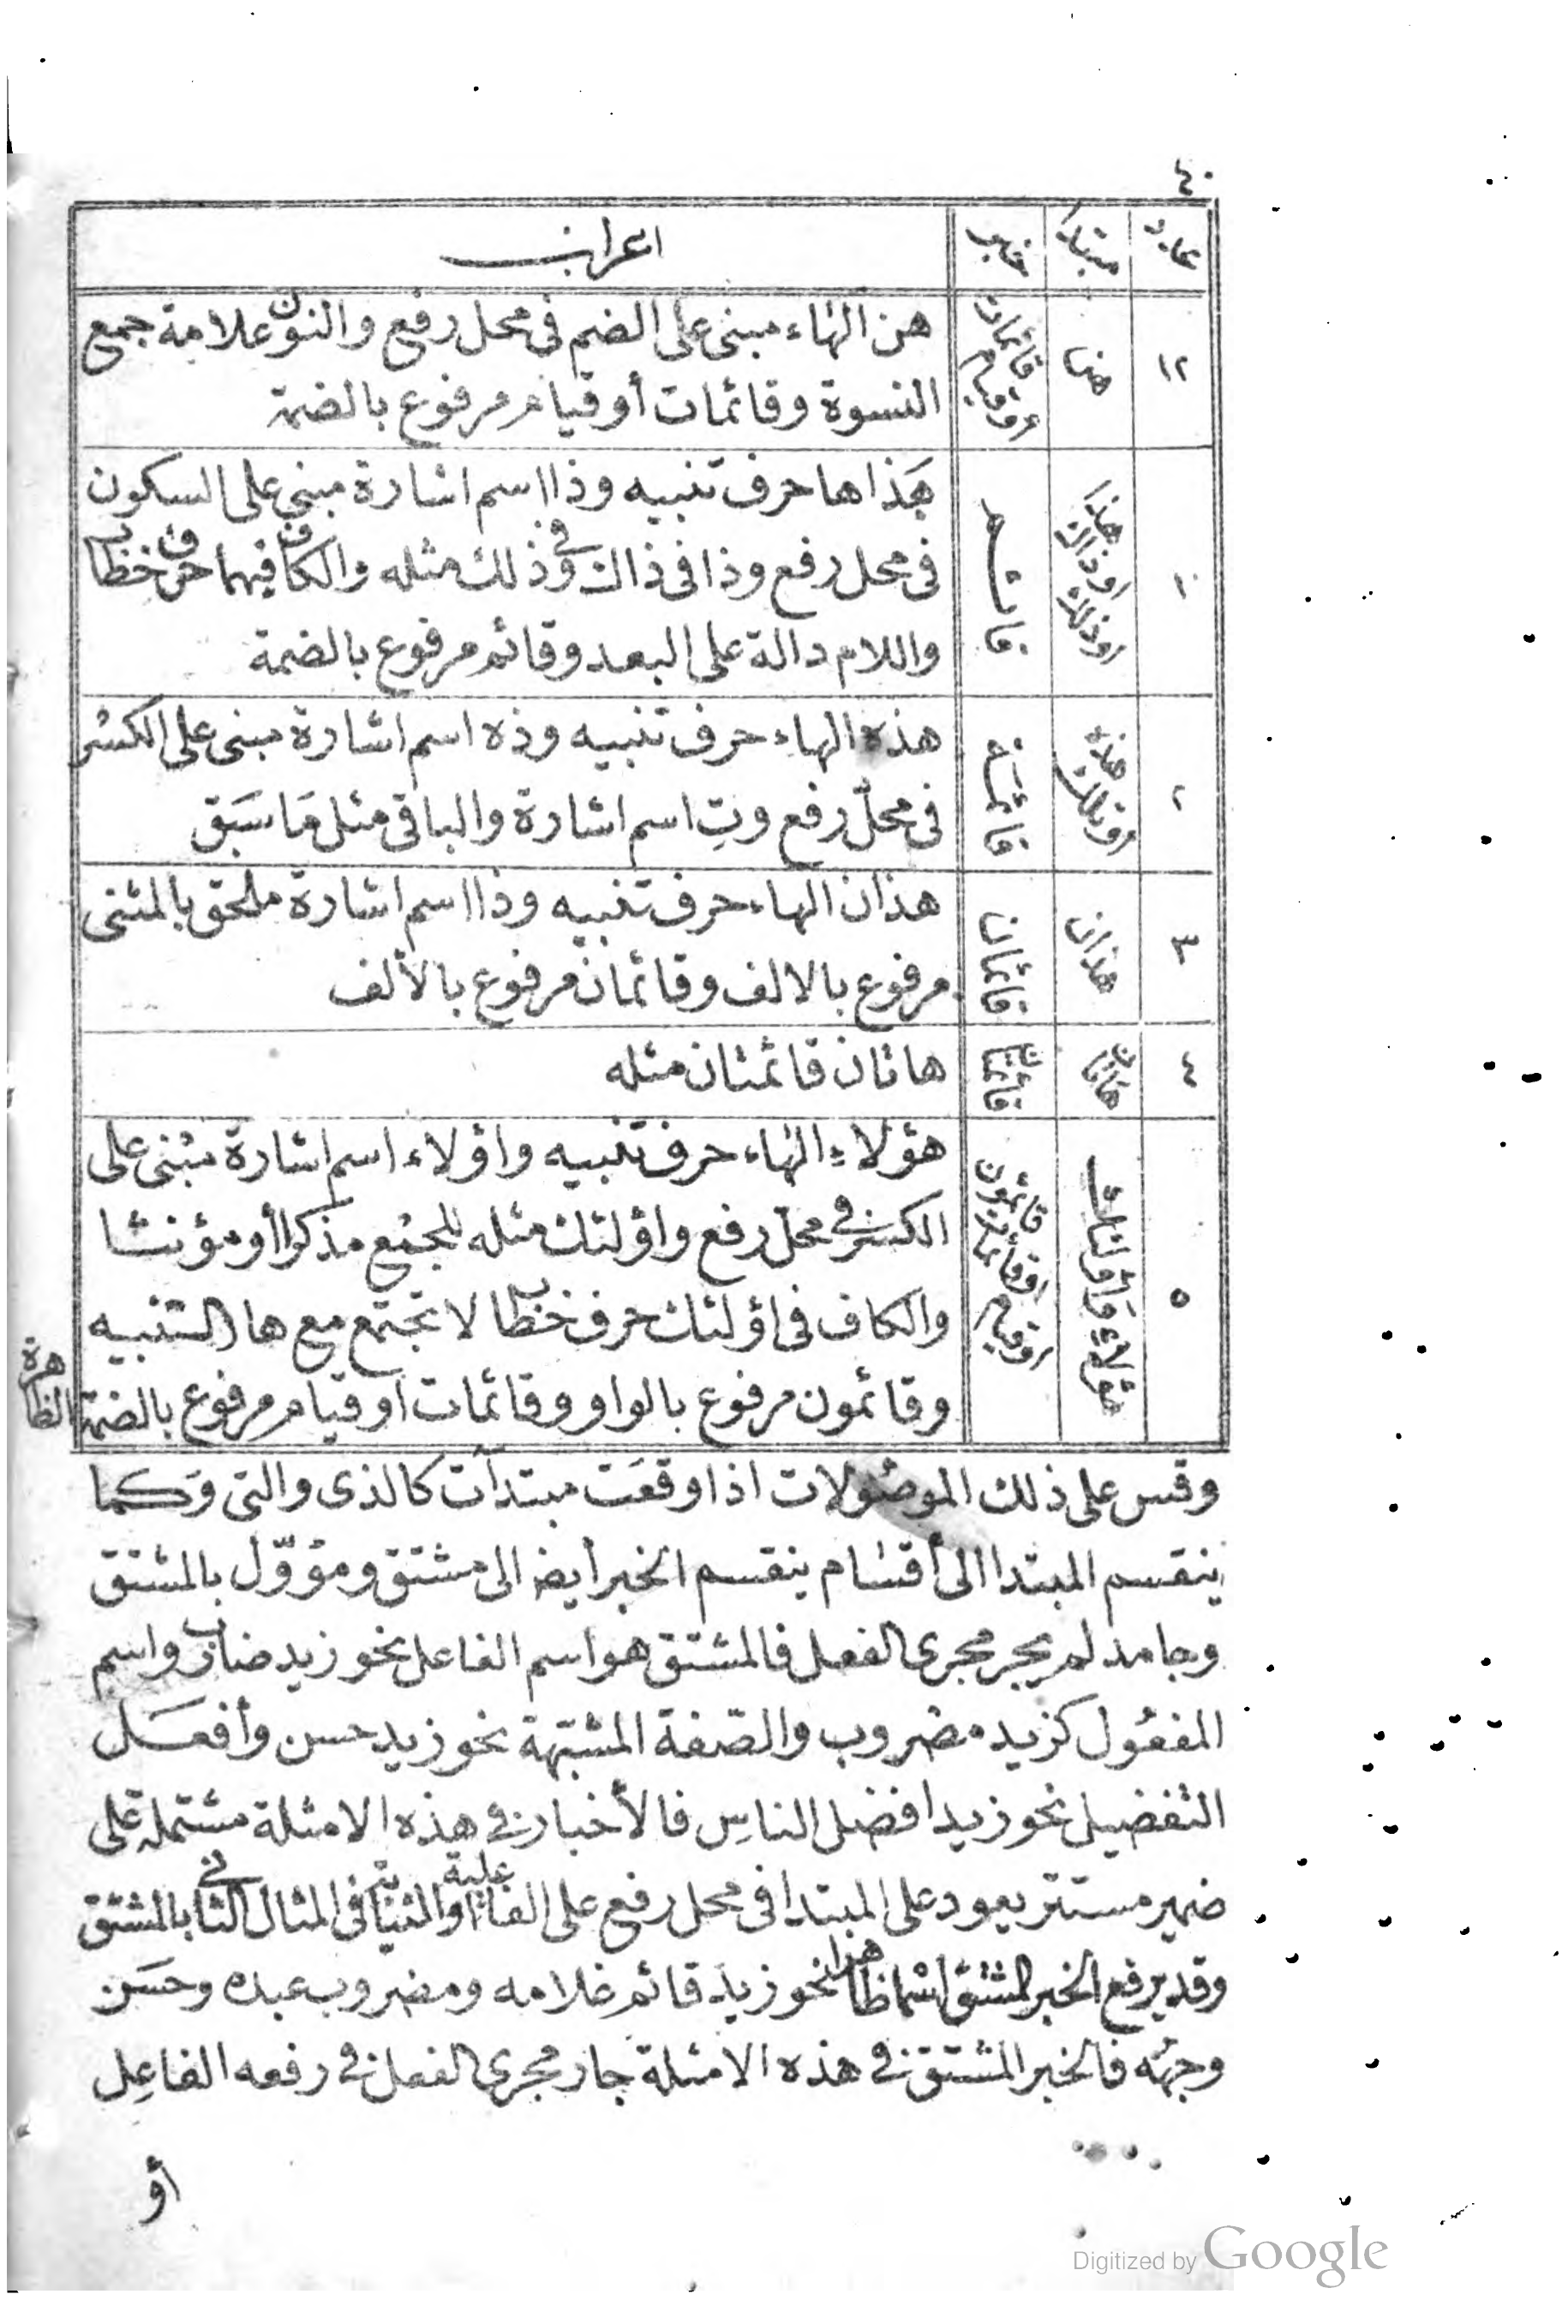 ٤٠
عدد مبتدا خبر اعراب
١٢ هن قائمات أو قيام
هن الهاء مبنى على الضم فى محل رفع والنون علامة جمع
النسوة وقائمات أو قيام مرفوع بالضمة
١ هذا أو ذاك أو ذلك قائم
هَذا ها حرف تنبيه وذا اسم اشارة مبنى على السكون
فى محل رفع وذا فى ذاك وفى ذلك مثله والكاف فيهما حرف خطاب
واللام دالة على البعد وقائم مرفوع بالضمة
٢ هذه أو تلك قائمة
هذه الهاء حرف تنبيه وذه اسم اشارة مبنى على الكسر
فى محلّ رفع وتِ اسم اشارة والباقى مثل مَا سَبَق
٣ هذان قائمان
هذان الهاء حرف تنبيه وذا اسم اشارة ملحق بالمثنى
مرفوع بالالف وقائمان مرفوع بالألف
٤ هاتان قائمتان
هاتان قائمتان مثله
٥ هؤلاءِ وَأولئك قائمون أو قائمات أو قيام
هؤلاءِ الهاء حرف تنبيه واؤلاء اسم اشارة مبنى على
الكسر فى محلّ رفع واؤلئك مثله للجمع مذكرا أو مؤنثا
والكاف فى اؤلئك حرف خطاب لا تجتمع مع ها التنبيه
وقائمون مرفوع بالواو وقائمات او قيام مرفوع بالضمة الظاهرة
وقس على ذلك الموصُولات اذا وقعَت مبتدآت كالذى والتى وَكما
ينقسم المبتدا الى أقسَام ينقسم الخبر أيضا الى مشتق ومؤوّل بالمشتق
وجامد لم يجر مجرى الفعل فالمشتق هو اسم الفاعل نحو زيد ضارب واسم
المفعُول كزيد مضروب والصّفة المشبّهة نحو زيد حسن وأفعَل
التفضيل نحو زيد افضل الناسِ فالأخبار فى هذه الامثلة مشتملة على
ضمير مستتر يعود على المبتدا فى محل رفع على الفاعلية او النيابة فى المثال الثانى بالمشتق
وقد يرفع الخبر المشتق اسْما ظاهرا نحو زيد قائم غلامه ومضروب عبده وحسَن
وجهُه فالخبر المشتق فى هذه الامثلة جار مجرى الفعل فى رفعه الفاعِل
أو
Digitized by Google